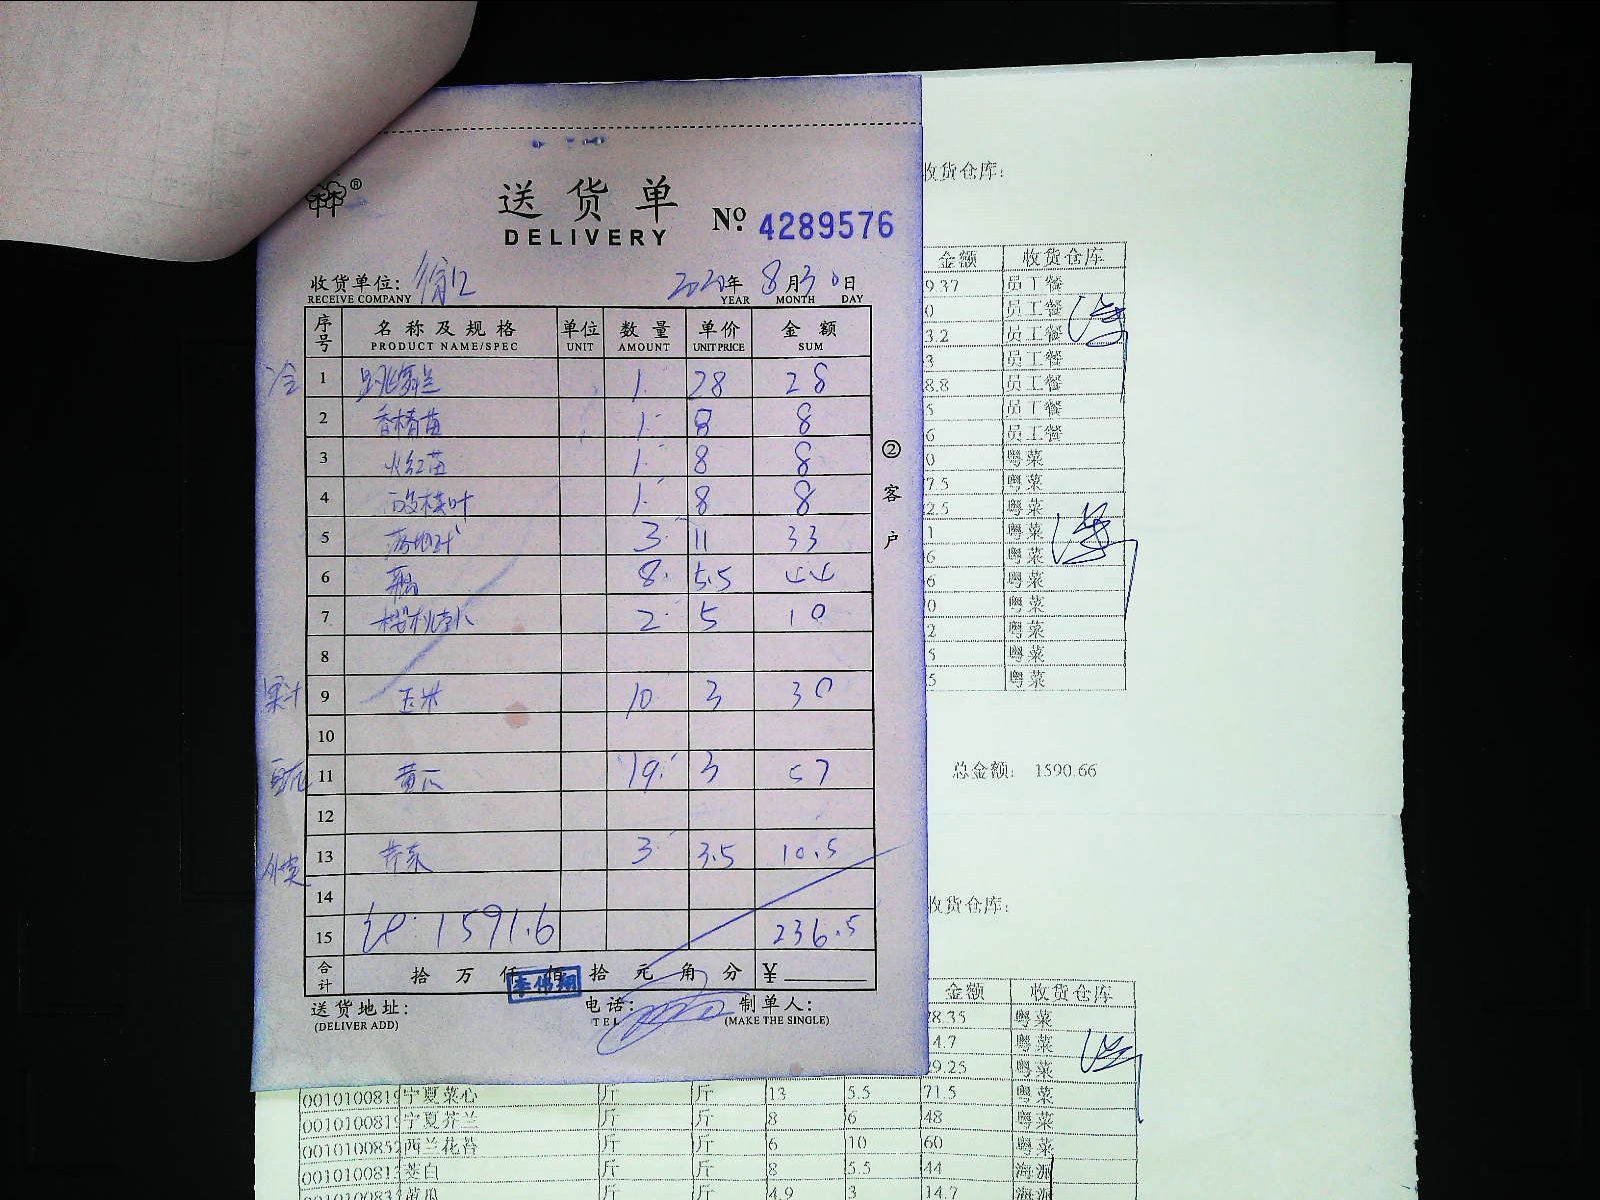 送货单
DELIVERY
No. 4289576
收货单位:
RECEIVE COMPANY
2020年 8月30日
YEAR MONTH DAY
序号 名称及规格 单位 数量 单价 金额
PRODUCT NAME/SPEC UNIT AMOUNT UNIT PRICE SUM
1 跳舞兰 1 28 28
2 香椿苗 1 8 8
3 火红苗 1 8 8
4 酸模叶 1 8 8
5 3 11 33
6 8 5.5 44
7 樱桃 2 5 10
8
果汁 9 玉米 10 3 30
10
11 黄瓜 19 3 57
12
外卖 13 芥菜 3 3.5 10.5
14
15 1591.6 236.5
合计 拾 万 仟 佰 拾 元 角 分 ¥
李伟翔
送货地址: 电话: 制单人:
(DELIVER ADD) TEL (MAKE THE SINGLE)
② 客户
收货仓库:
金额 收货仓库
9.37 员工餐
0 员工餐
3.2 员工餐
3 员工餐
8.8 员工餐
5 员工餐
6 员工餐
0 粤菜
7.5 粤菜
2.5 粤菜
1 粤菜
6 粤菜
6 粤菜
0 粤菜
2 粤菜
5 粤菜
5 粤菜
总金额: 1590.66
收货仓库:
金额 收货仓库
78.35 粤菜
4.7 粤菜
29.25 粤菜
001010081 宁夏菜心 斤 斤 13 5.5 71.5 粤菜
001010081 宁夏芥兰 斤 斤 8 6 48 粤菜
001010085 西兰花苔 斤 斤 6 10 60 粤菜
001010081 茭白 斤 斤 8 5.5 44 海派
001010083 黄瓜 斤 斤 4.9 3 14.7 海派